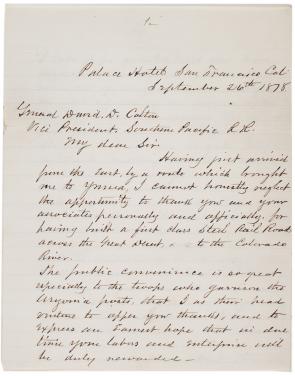 1
Palace Hotel San Francisco Cal
September 26th 1878.
General David. D. Colton
Vice President, Southern Pacific R.R.
My dear Sir
Having just arrived
from the East, by a route which brought
me to Yuma, I cannot honestly neglect
the opportunity to thank you and your
associates personally and officially, for
having built a first class Steel Rail Road
across the Great Desert, to the Colorado
River.
The public convenience is so great
especially to the troops who garrison the
Arizona posts, that I as their head
venture to offer you thanks, and to
express an Earnest hope that in due
time your labors and Enterprise will
be duly rewarded —